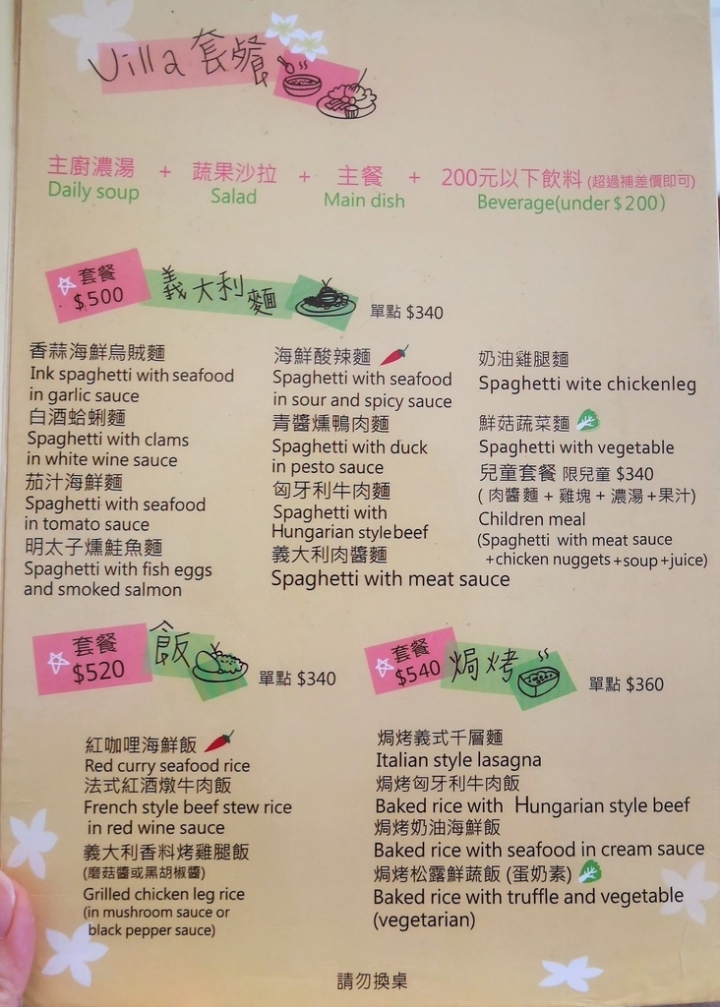 Villa 套餐
主廚濃湯 + 蔬果沙拉 + 主餐 + 200元以下飲料 (超過補差價即可)
Daily soup Salad Main dish Beverage(under $200)
套餐 $500 義大利麵 單點 $340
香蒜海鮮烏賊麵
Ink spaghetti with seafood
in garlic sauce
白酒蛤蜊麵
Spaghetti with clams
in white wine sauce
茄汁海鮮麵
Spaghetti with seafood
in tomato sauce
明太子燻鮭魚麵
Spaghetti with fish eggs
and smoked salmon
海鮮酸辣麵
Spaghetti with seafood
in sour and spicy sauce
青醬燻鴨肉麵
Spaghetti with duck
in pesto sauce
匈牙利牛肉麵
Spaghetti with
Hungarian style beef
義大利肉醬麵
Spaghetti with meat sauce
奶油雞腿麵
Spaghetti wite chickenleg
鮮菇蔬菜麵
Spaghetti with vegetable
兒童套餐 限兒童 $340
(肉醬麵 + 雞塊 + 濃湯 + 果汁)
Children meal
(Spaghetti with meat sauce
+chicken nuggets+soup+juice)
套餐 $520 飯 單點 $340
紅咖哩海鮮飯
Red curry seafood rice
法式紅酒燉牛肉飯
French style beef stew rice
in red wine sauce
義大利香料烤雞腿飯
(磨菇醬或黑胡椒醬)
Grilled chicken leg rice
(in mushroom sauce or
black pepper sauce)
套餐 $540 焗烤 單點 $360
焗烤義式千層麵
Italian style lasagna
焗烤匈牙利牛肉飯
Baked rice with Hungarian style beef
焗烤奶油海鮮飯
Baked rice with seafood in cream sauce
焗烤松露鮮蔬飯 (蛋奶素)
Baked rice with truffle and vegetable
(vegetarian)
請勿換桌